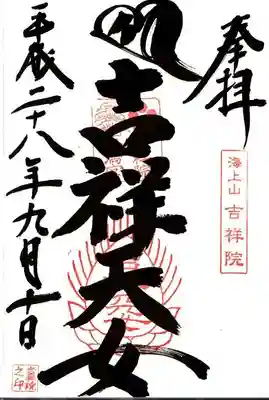 奉拝
海上山 吉祥院
吉祥天女
平成二十八年九月十日